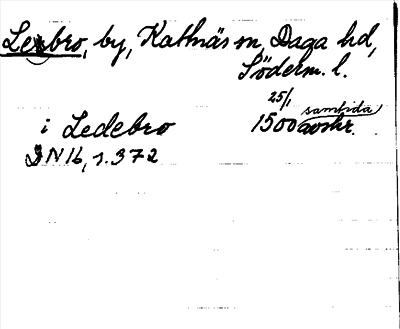 Lerbro, by, Kattnäs sn, Daga hd,
Söderm. l.
25/1 samtida
i Ledebro 1500 avskr.
DN 16, s. 372